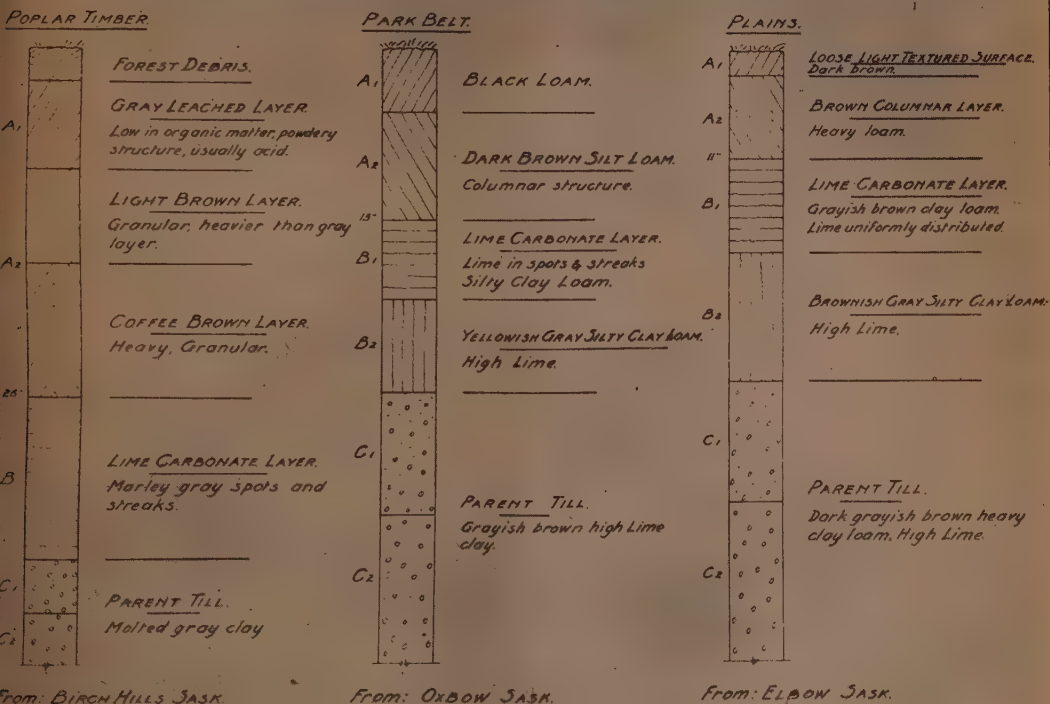 POPLAR TIMBER.
FOREST DEBRIS.
A₁
GRAY LEACHED LAYER.
Low in organic matter, powdery
structure, usually acid.
LIGHT BROWN LAYER.
Granular, heavier than gray
layer.
A₂
COFFEE BROWN LAYER.
Heavy, Granular.
26"
B
LIME CARBONATE LAYER.
Marley gray spots and
streaks.
C₁
PARENT TILL.
Molted gray clay
C₂
From: BIRCH HILLS SASK.
PARK BELT.
A₁
BLACK LOAM.
A₂
DARK BROWN SILT LOAM.
Columnar structure.
15"
B₁
LIME CARBONATE LAYER.
Lime in spots & streaks
Silty Clay Loam.
B₂
YELLOWISH GRAY SILTY CLAY LOAM.
High Lime.
C₁
PARENT TILL.
Grayish brown high Lime
clay.
C₂
From: OXBOW SASK.
PLAINS.
A₁
LOOSE LIGHT TEXTURED SURFACE.
Dark brown.
A₂
BROWN COLUMNAR LAYER.
Heavy loam.
11"
B₁
LIME CARBONATE LAYER.
Grayish brown clay loam.
Lime uniformly distributed.
B₂
BROWNISH GRAY SILTY CLAY LOAM.
High Lime.
C₁
PARENT TILL.
Dark grayish brown heavy
clay loam. High Lime.
C₂
From: ELBOW SASK.